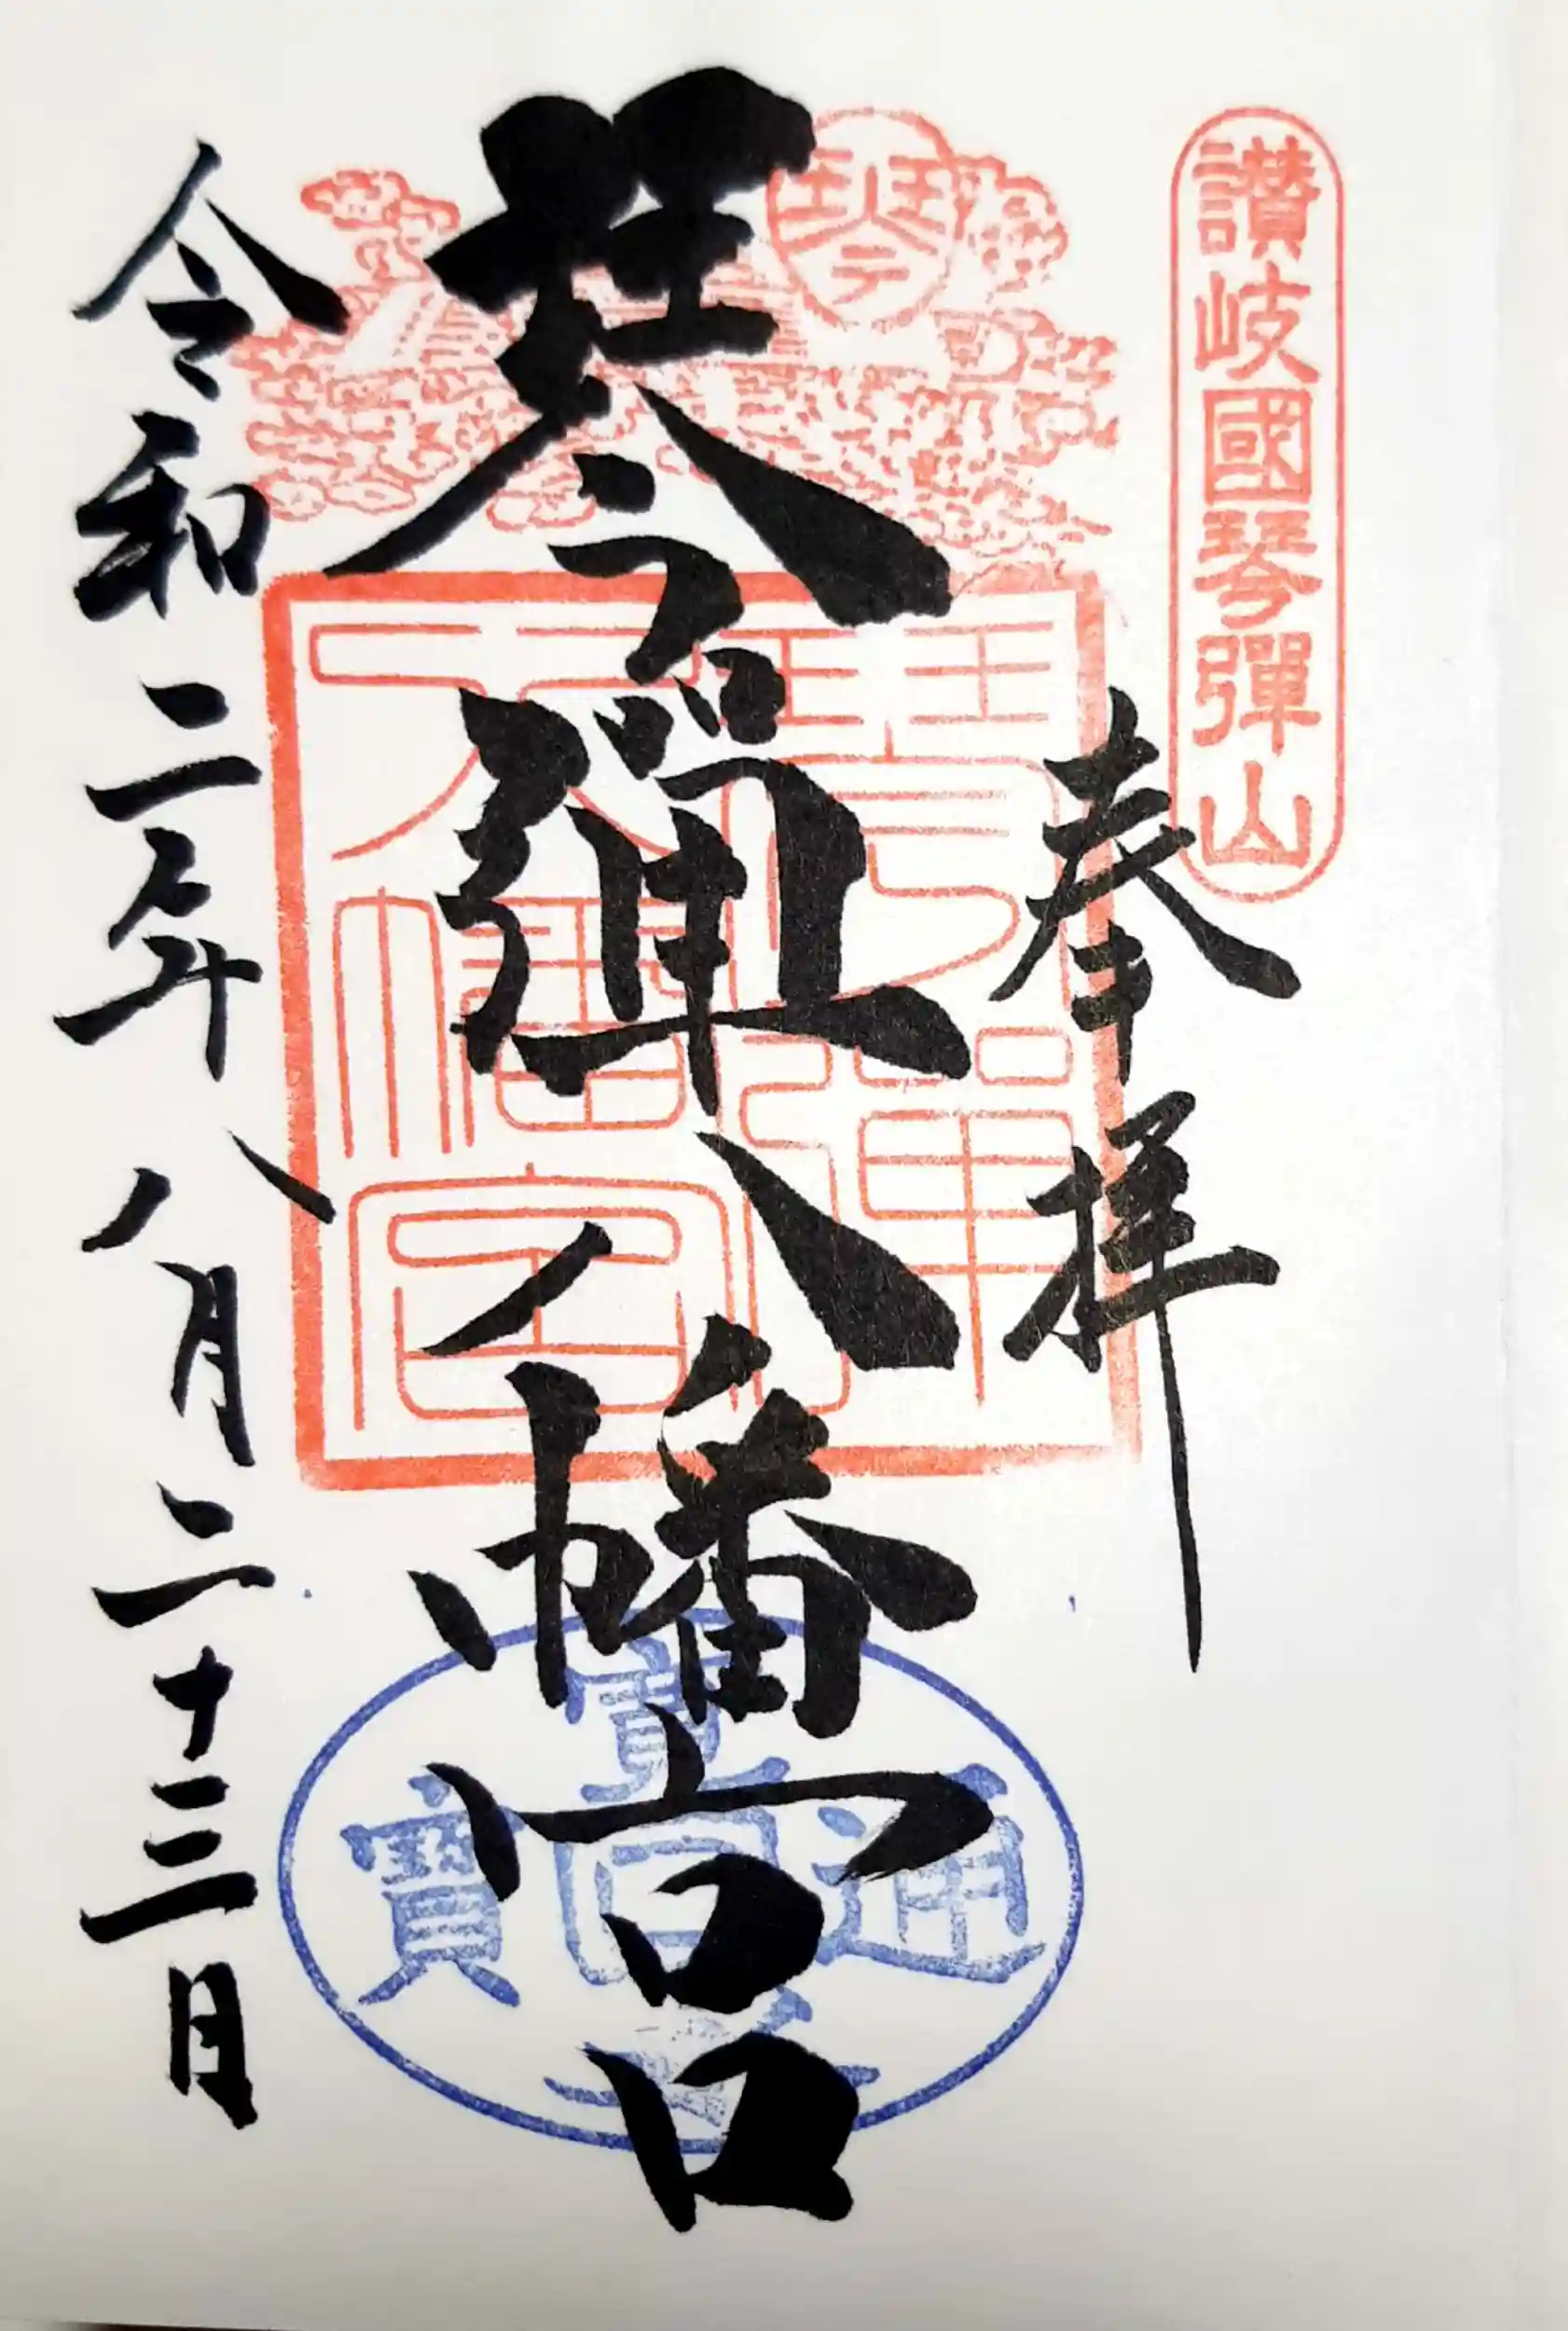 讃岐國琴彈山
奉拝
琴弾八幡宮
令和二年八月二十三日
琴
琴彈
八幡宮
通寶